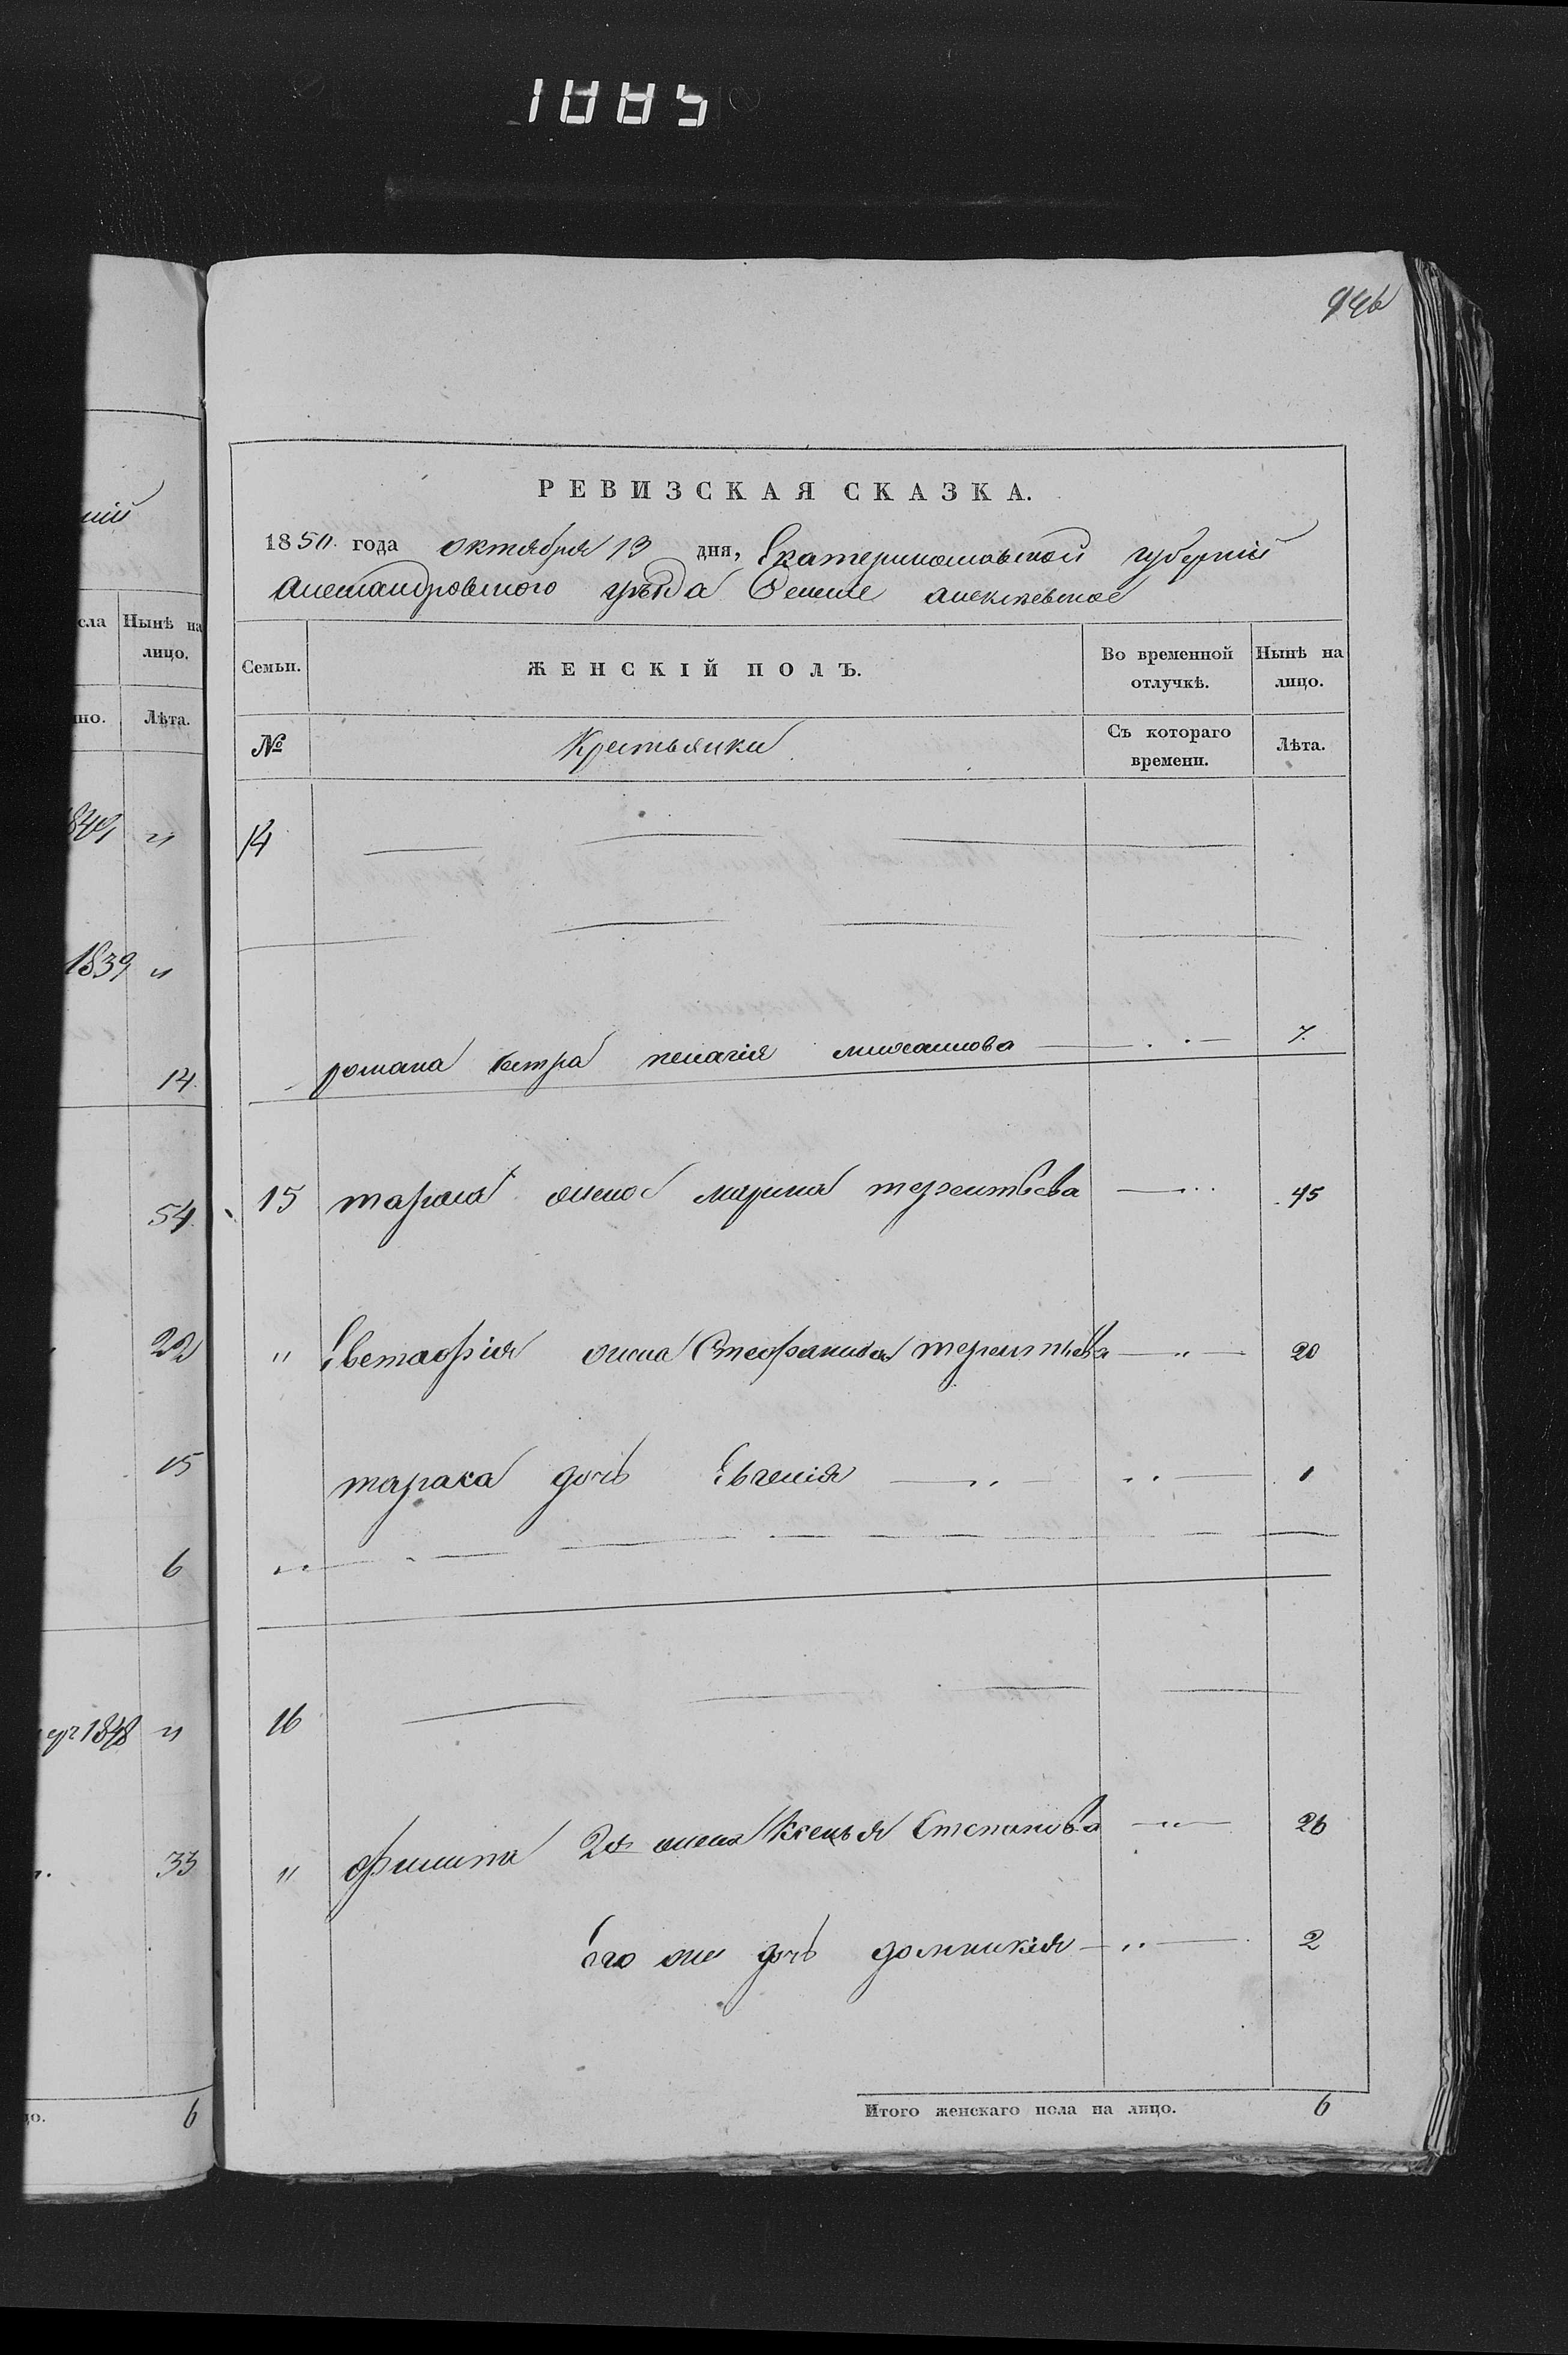 1885
946
РЕВИЗСКАЯ СКАЗКА.
1850 года октября 13 дня, Екатеринославской губерніи
александровского уѣзда Селеніе алексѣевское
Семьи. ЖЕНСКІЙ ПОЛЪ. Во временной отлучкѣ. Нынѣ на лицо.
№ Крестьянки Съ котораго времени. Лѣта.
14
романа сестра пелагія 7.
15 тараса жена марина терентьева 45
" Евстафія жена Стефанида терентьева " 20
тараса дочь Евгенія " " 1
"
16
" филипа 2я жена Ксенья Степанова " 26
Его же дочь домникія " 2
Итого женскаго пола на лицо. 6
сла Нынѣ на лицо.
но. Лѣта.
1849 "
1839 "
14.
54.
22
15
6
1848 "
33
6